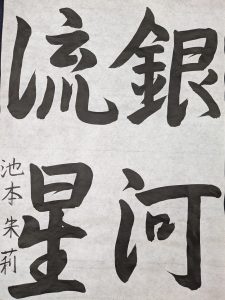 銀河
流星
池本朱莉